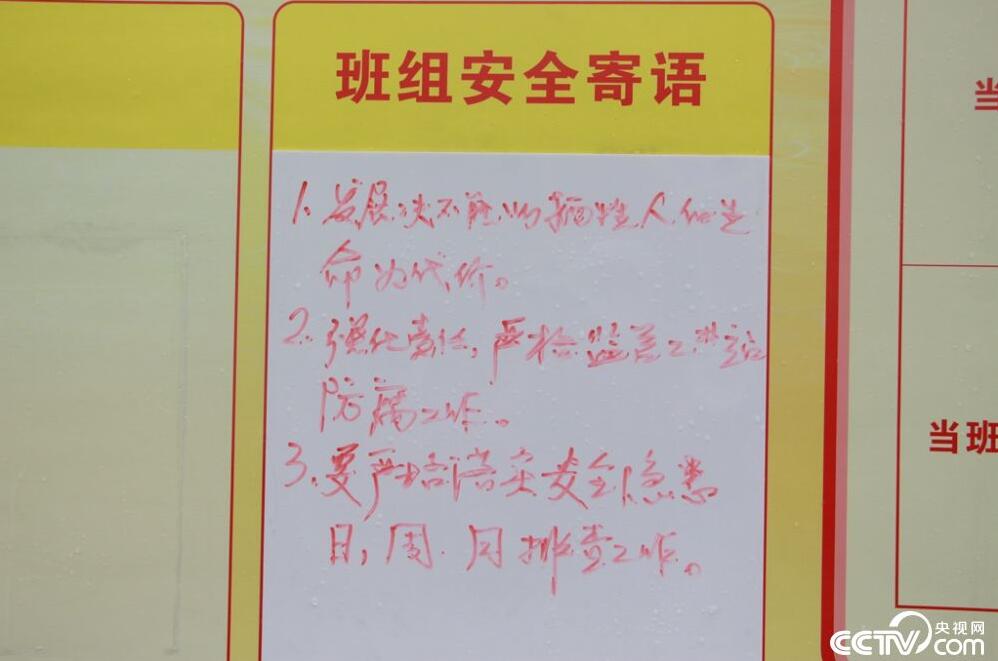 班组安全寄语
1、发展决不能以牺牲人的生
命为代价。
2.强化责任,严格监管工业站
防腐工作。
3、要严格落实安全隐患
日,周.月排查工作。
当
当班
央视网
CCTV.com